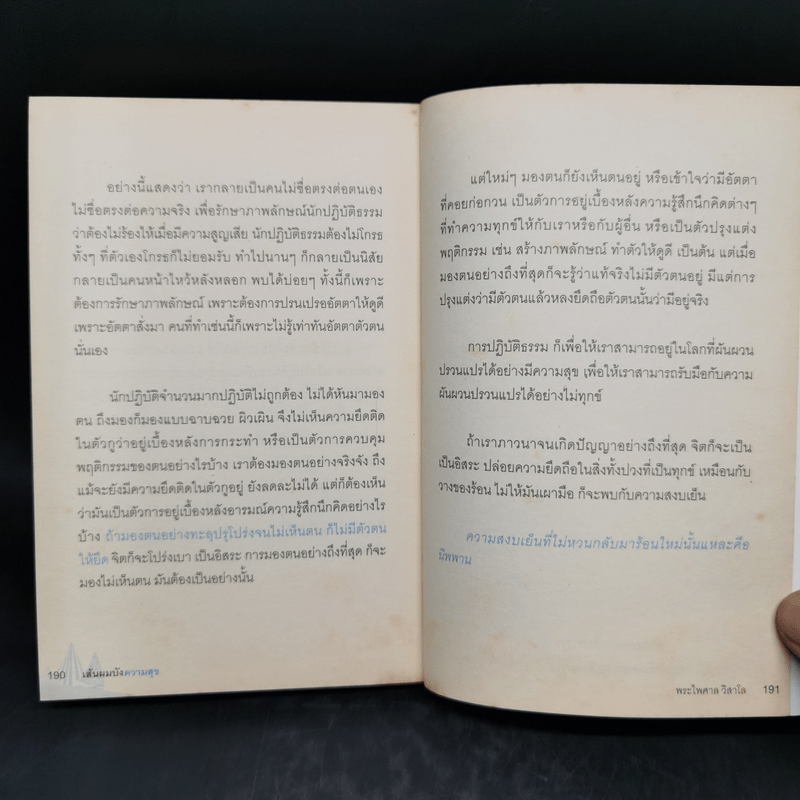 อย่างนี้แสดงว่า เรากลายเป็นคนไม่ซื่อตรงต่อตนเอง
ไม่ซื่อตรงต่อความจริง เพื่อรักษาภาพลักษณ์นักปฏิบัติธรรม
ว่าต้องไม่ร้องไห้เมื่อมีความสูญเสีย นักปฏิบัติธรรมต้องไม่โกรธ
ทั้งๆ ที่ตัวเองโกรธก็ไม่ยอมรับ ทำไปนานๆ ก็กลายเป็นนิสัย
กลายเป็นคนหน้าไหว้หลังหลอก พบได้บ่อยๆ ทั้งนี้ก็เพราะ
ต้องการรักษาภาพลักษณ์ เพราะต้องการปรนเปรออัตตาให้ดูดี
เพราะอัตตาสั่งมา คนที่ทำเช่นนี้ก็เพราะไม่รู้เท่าทันอัตตาตัวตน
นั่นเอง
นักปฏิบัติจำนวนมากปฏิบัติไม่ถูกต้อง ไม่ได้หันมามอง
ตน ถึงมองก็มองแบบฉาบฉวย ผิวเผิน จึงไม่เห็นความยึดติด
ในตัวกูว่าอยู่เบื้องหลังการกระทำ หรือเป็นตัวการควบคุม
พฤติกรรมของตนอย่างไรบ้าง เราต้องมองตนอย่างจริงจัง ถึง
แม้จะยังมีความยึดติดในตัวกูอยู่ ยังลดละไม่ได้ แต่ก็ต้องเห็น
ว่ามันเป็นตัวการอยู่เบื้องหลังอารมณ์ความรู้สึกนึกคิดอย่างไร
บ้าง ถ้ามองตนอย่างทะลุปรุโปร่งจนไม่เห็นตน ก็ไม่มีตัวตน
ให้ยึด จิตก็จะโปร่งเบา เป็นอิสระ การมองตนอย่างถึงที่สุด ก็จะ
มองไม่เห็นตน มันต้องเป็นอย่างนั้น
190 เส้นผมบังความสุข
แต่ใหม่ๆ มองตนก็ยังเห็นตนอยู่ หรือเข้าใจว่ามีอัตตา
ที่คอยก่อกวน เป็นตัวการอยู่เบื้องหลังความรู้สึกนึกคิดต่างๆ
ที่ทำความทุกข์ให้กับเราหรือกับผู้อื่น หรือเป็นตัวปรุงแต่ง
พฤติกรรม เช่น สร้างภาพลักษณ์ ทำตัวให้ดูดี เป็นต้น แต่เมื่อ
มองตนอย่างถึงที่สุดก็จะรู้ว่าแท้จริงไม่มีตัวตนอยู่ มีแต่การ
ปรุงแต่งว่ามีตัวตนแล้วหลงยึดถือตัวตนนั้นว่ามีอยู่จริง
การปฏิบัติธรรม ก็เพื่อให้เราสามารถอยู่ในโลกที่ผันผวน
ปรวนแปรได้อย่างมีความสุข เพื่อให้เราสามารถรับมือกับความ
ผันผวนปรวนแปรได้อย่างไม่ทุกข์
ถ้าเราภาวนาจนเกิดปัญญาอย่างถึงที่สุด จิตก็จะเป็น
เป็นอิสระ ปล่อยความยึดถือในสิ่งทั้งปวงที่เป็นทุกข์ เหมือนกับ
วางของร้อน ไม่ให้มันเผามือ ก็จะพบกับความสงบเย็น
ความสงบเย็นที่ไม่หวนกลับมาร้อนใหม่นั้นแหละคือ
นิพพาน
พระไพศาล วิสาโล 191